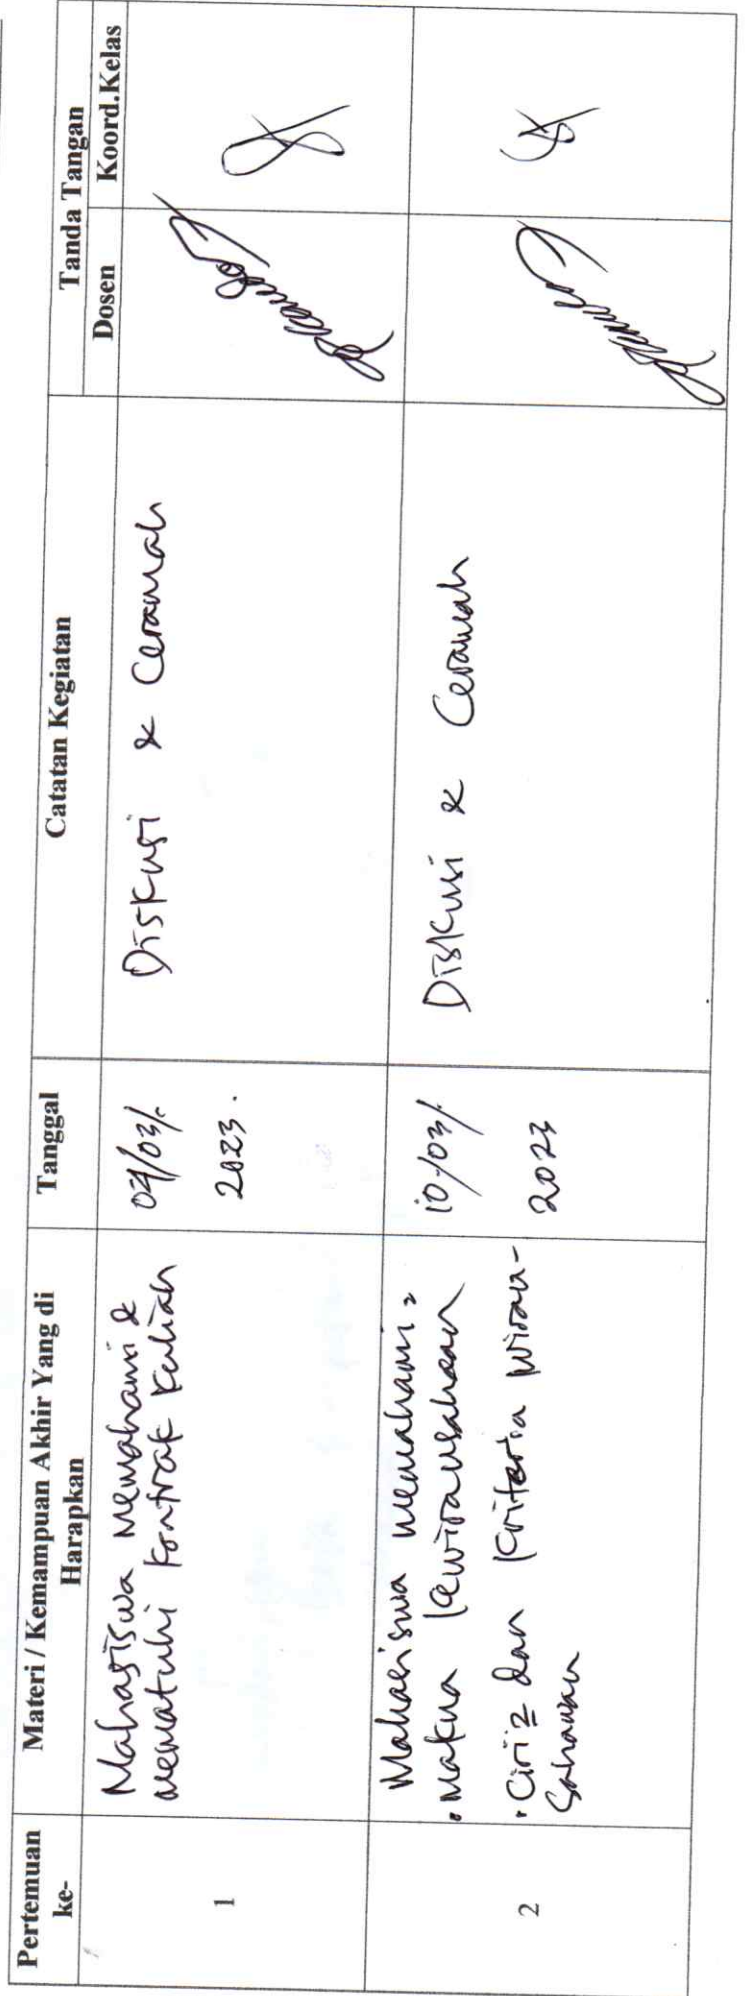 Pertemuan
ke-
Materi / Kemampuan Akhir Yang di
Harapkan
Tanggal
Catatan Kegiatan
Tanda Tangan
Dosen
Koord.Kelas
1
Mahasiswa memahami &
mematuhi kontrak kuliah
07/03/
2023.
Diskusi & Ceramah
2
Mahasiswa memahami:
• Makna kewirausahaan
• Ciri2 dan kriteria wirau-
sahawan
10/03/
2023
Diskusi & Ceramah